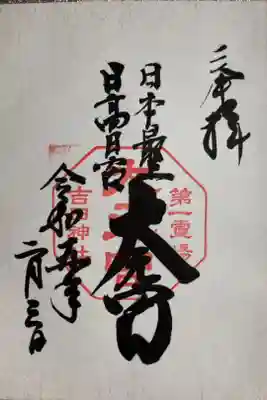 奉拝
日本最上
日高日宮
大元宮
第一霊場
吉田神社
令和五年
二月三日